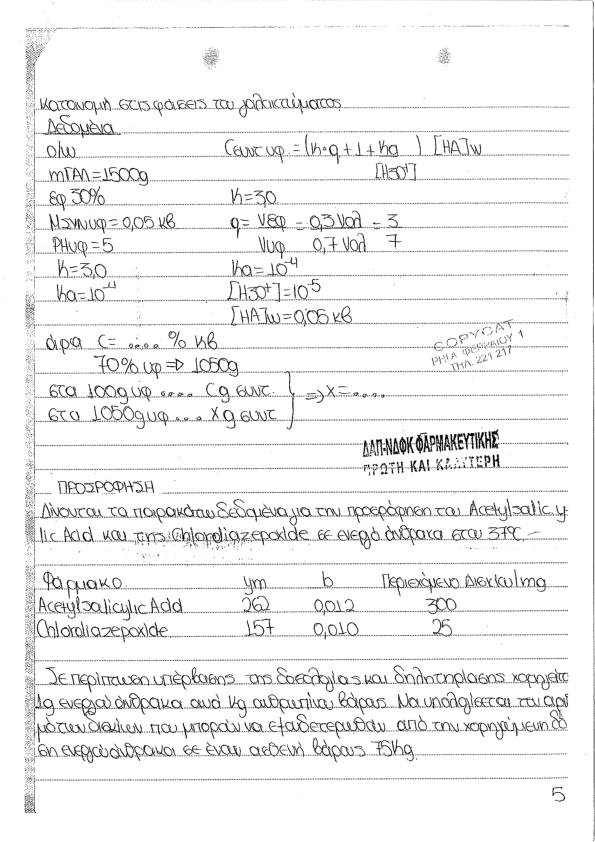 Κατανομή στις φάσεις του γαλακτώματος
Δεδομένα
ο/w Cσυντ υφ = (k·q+1+ka/[H3O+]) [HA]w
mΓΑΛ=1500g
εφ 30% k=3,0
Mσυνυφ=0,05 κβ q= Vεφ/Vυφ = 0,3 Vολ/0,7 Vολ = 3/7
PHυφ=5
k=3,0 ka=10^-4
ka=10^-4 [H3O+]=10^-5
[HA]w=0,05 κβ
άρα C= ..... % κβ
70% υφ => 1050g
στα 100g υφ .... C g συντ.
στα 1050g υφ .... X g συντ } => x=....
COPYCAT
ΡΗΓΑ ΦΕΡΡΑΙΟΥ 1
ΤΗΛ. 221 217
ΔΑΠ-ΝΔΦΚ ΦΑΡΜΑΚΕΥΤΙΚΗΣ
ΠΡΩΤΗ ΚΑΙ ΚΑΛΥΤΕΡΗ
ΠΡΟΣΡΟΦΗΣΗ
Δίνονται τα παρακάτω δεδομένα για την προσρόφηση του Acetylsalicy-
lic Acid και της Chlorodiazepoxide σε ενεργό άνθρακα στους 37°C -
Φάρμακο ym b Περιεχόμενο Δισκίου/mg
Acetylsalicylic Acid 262 0,012 300
Chlorodiazepoxide 157 0,010 25
Σε περίπτωση υπέρβασης της δοσολογίας και δηλητηρίασης χορηγείτε
1g ενεργού άνθρακα ανά Kg ανθρωπίνου βάρους. Να υπολογίσεται τον αρι
μό των δισκίων που μπορούν να εξουδετερωθούν από την χορηγούμενη δό
ση ενεργού άνθρακα σε έναν ασθενή βάρους 75Kg.
5